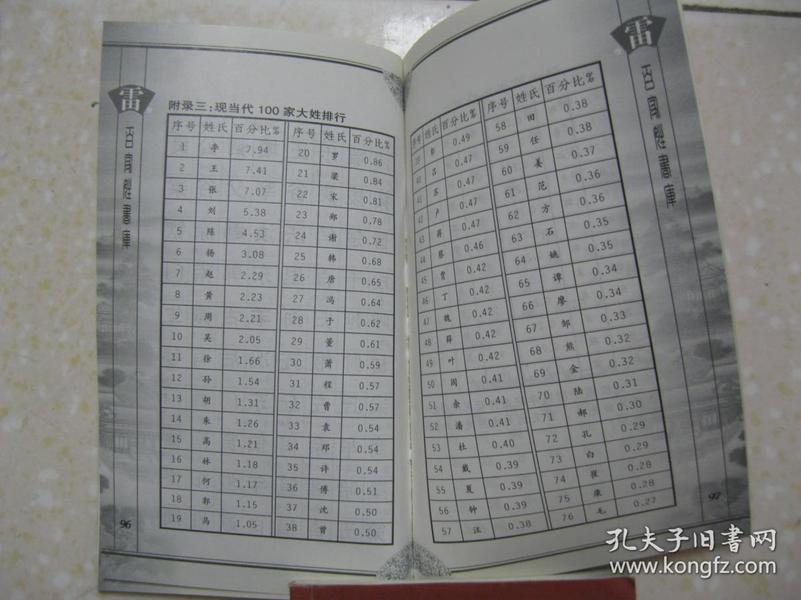 雷
附录三:现当代 100 家大姓排行
序号 姓氏 百分比% 序号 姓氏 百分比%
1 李 7.94 20 罗 0.86
2 王 7.41 21 梁 0.84
3 张 7.07 22 宋 0.81
4 刘 5.38 23 郑 0.78
5 陈 4.53 24 谢 0.72
6 杨 3.08 25 韩 0.68
7 赵 2.29 26 唐 0.65
8 黄 2.23 27 冯 0.64
9 周 2.21 28 于 0.62
10 吴 2.05 29 董 0.61
11 徐 1.66 30 萧 0.59
12 孙 1.54 31 程 0.57
13 胡 1.31 32 曹 0.57
14 朱 1.26 33 袁 0.54
15 高 1.21 34 邓 0.54
16 林 1.18 35 许 0.54
17 何 1.17 36 傅 0.51
18 郭 1.15 37 沈 0.50
19 马 1.05 38 曾 0.50
96
雷
序号 姓氏 百分比% 序号 姓氏 百分比%
39 彭 0.49 58 田 0.38
40 吕 0.47 59 任 0.38
41 苏 0.47 60 姜 0.37
42 卢 0.47 61 范 0.36
43 蒋 0.47 62 方 0.36
44 蔡 0.46 63 石 0.35
45 贾 0.42 64 姚 0.35
46 丁 0.42 65 谭 0.34
47 魏 0.42 66 廖 0.34
48 薛 0.42 67 邹 0.33
49 叶 0.42 68 熊 0.32
50 阎 0.41 69 金 0.32
51 余 0.41 70 陆 0.31
52 潘 0.41 71 郝 0.30
53 杜 0.40 72 孔 0.29
54 戴 0.39 73 白 0.29
55 夏 0.39 74 崔 0.28
56 钟 0.39 75 康 0.28
57 汪 0.38 76 毛 0.27
97
孔夫子旧书网
www.kongfz.com